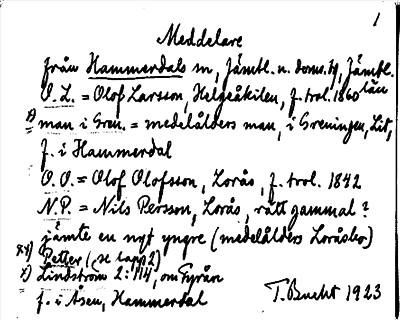 1
Meddelare
från Hammerdals sn, Jämtl. n. doms. hd, Jämtl. län
O. L. = Olof Larsson, Helgeåkilen, f. trol. 1860
x) man i Gren. = medelålders man, i Greningen, Lit,
f. i Hammerdal
O. O. = Olof Olofsson, Lorås, f. trol. 1842
N. P. = Nils Persson, Lorås, rätt gammal?
jämte en ngt yngre (medelålders Loråsbo)
xx) Petter (se lapp 2)
x) Lindström 2: 114, om Fyrån
f. i Åsen, Hammerdal
T. Bucht 1923